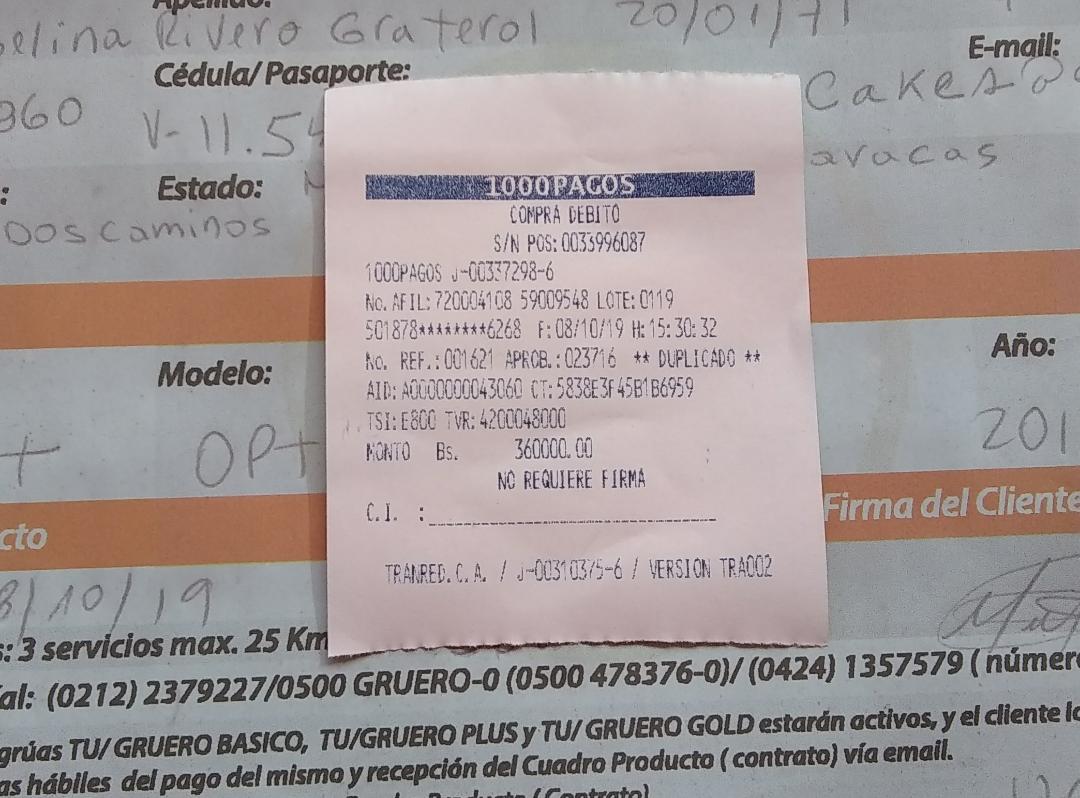 Apellido:
elina Rivero Graterol 20/01/71
E-mail:
Cédula/Pasaporte:
360 V-11.54 Cakes@
aracas
Estado:
Dos caminos
1000PAGOS
COMPRA DEBITO
S/N POS: 0033996087
1000PAGOS J-00337298-6
No. AFIL: 720004108 59009548 LOTE: 0119
501878********6268 F: 08/10/19 H: 15:30:32
No. REF.: 001621 APROB.: 023716 ** DUPLICADO **
AID: A0000000043060 CT: 5838E3F45B1B6959
TSI: E800 TVR: 4200048000
MONTO Bs. 360000.00
NO REQUIERE FIRMA
C.I. :
TRANRED.C.A. / J-00310375-6 / VERSION TRA002
Modelo:
Año:
OPt
201
cto
Firma del Cliente
8/10/19
s: 3 servicios max. 25 Km
al: (0212) 2379227/0500 GRUERO-0 (0500 478376-0)/ (0424) 1357579 ( número
grúas TU/ GRUERO BASICO, TU/GRUERO PLUS y TU/ GRUERO GOLD estarán activos, y el cliente lo
as hábiles del pago del mismo y recepción del Cuadro Producto ( contrato) vía email.